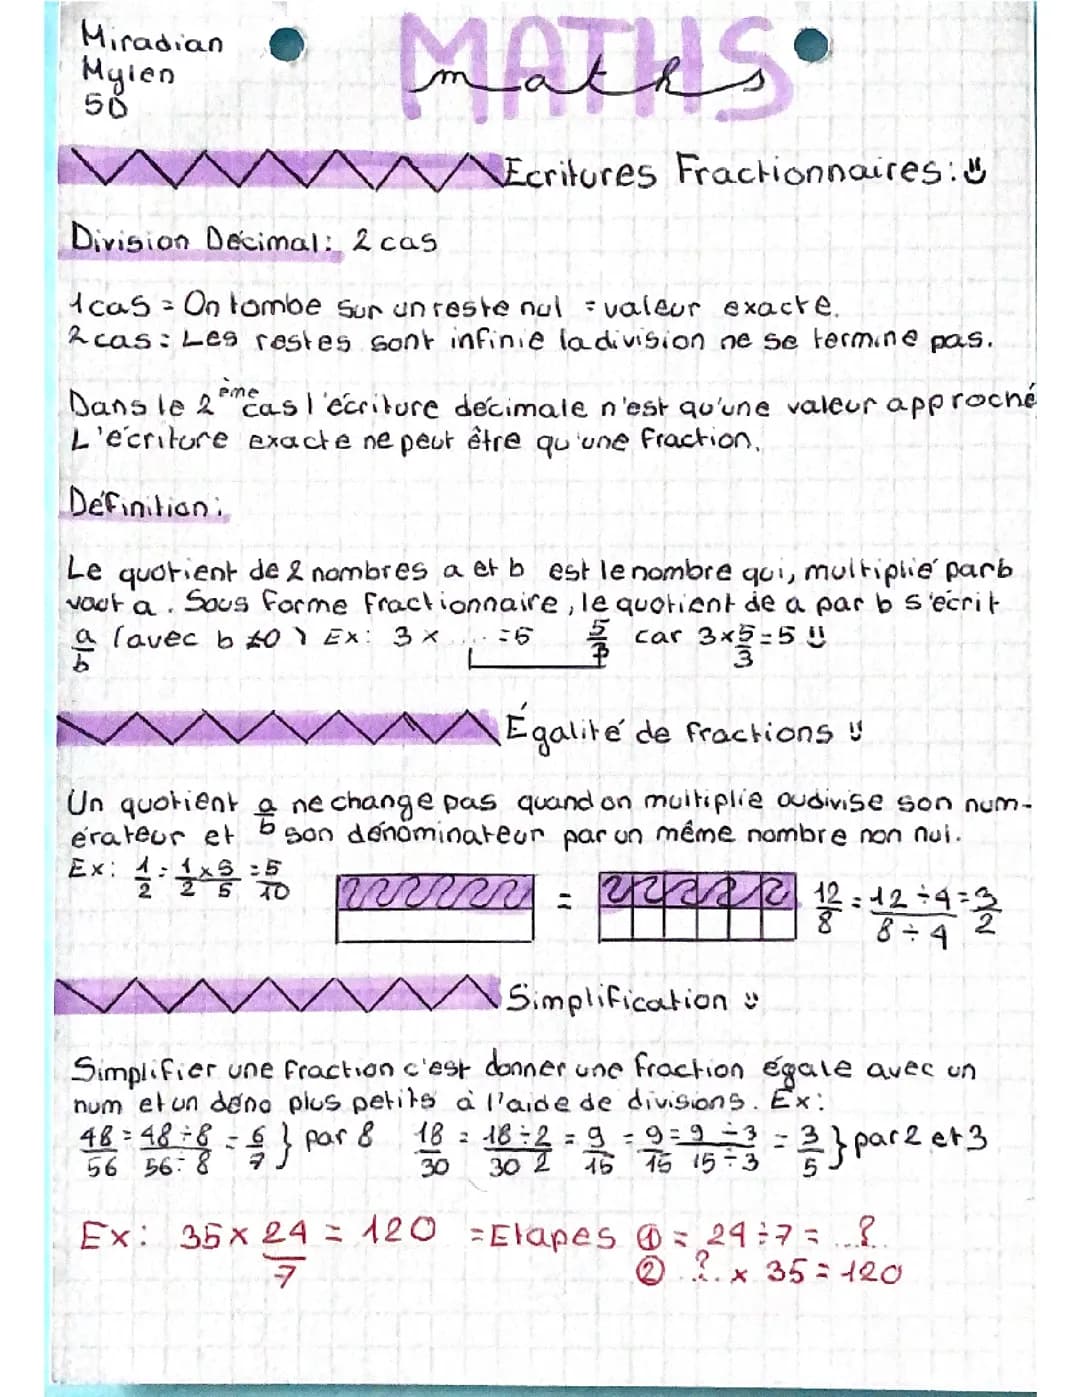 Miradian
Mylen
5D
MATHS
maths
Ecritures Fractionnaires:
Division Décimal: 2 cas
1cas = On tombe sur un reste nul = valeur exacte.
2cas: Les restes sont infinie la division ne se termine pas.
Dans le 2ème cas l'écriture décimale n'est qu'une valeur approché
L'écriture exacte ne peut être qu'une fraction.
Définition:
Le quotient de 2 nombres a et b est le nombre qui, multiplié par b
vaut a. Sous forme fractionnaire, le quotient de a par b s'écrit
a/b (avec b ≠0) Ex: 3 × .... =5 5/3 car 3×5/3=5
Égalité de fractions
Un quotient a/b ne change pas quand on multiplie ou divise son num-
érateur et son dénominateur par un même nombre non nul.
Ex: 1/2 = 1×5/2 5 = 5/10 = 12/8 = 12÷4/8÷4 = 3/2
Simplification
Simplifier une fraction c'est donner une fraction égale avec un
num et un déno plus petits à l'aide de divisions. Ex:
48/56 = 48÷8/56÷8 = 6/7 } par 8 18/30 = 18÷2/30 2 = 9/15 = 9/15 = 9÷3/15÷3 = 3/5 } par 2 et 3
Ex: 35 × 24/7 = 120 = Etapes ① = 24÷7 = ...?..
② .?. × 35 = 120